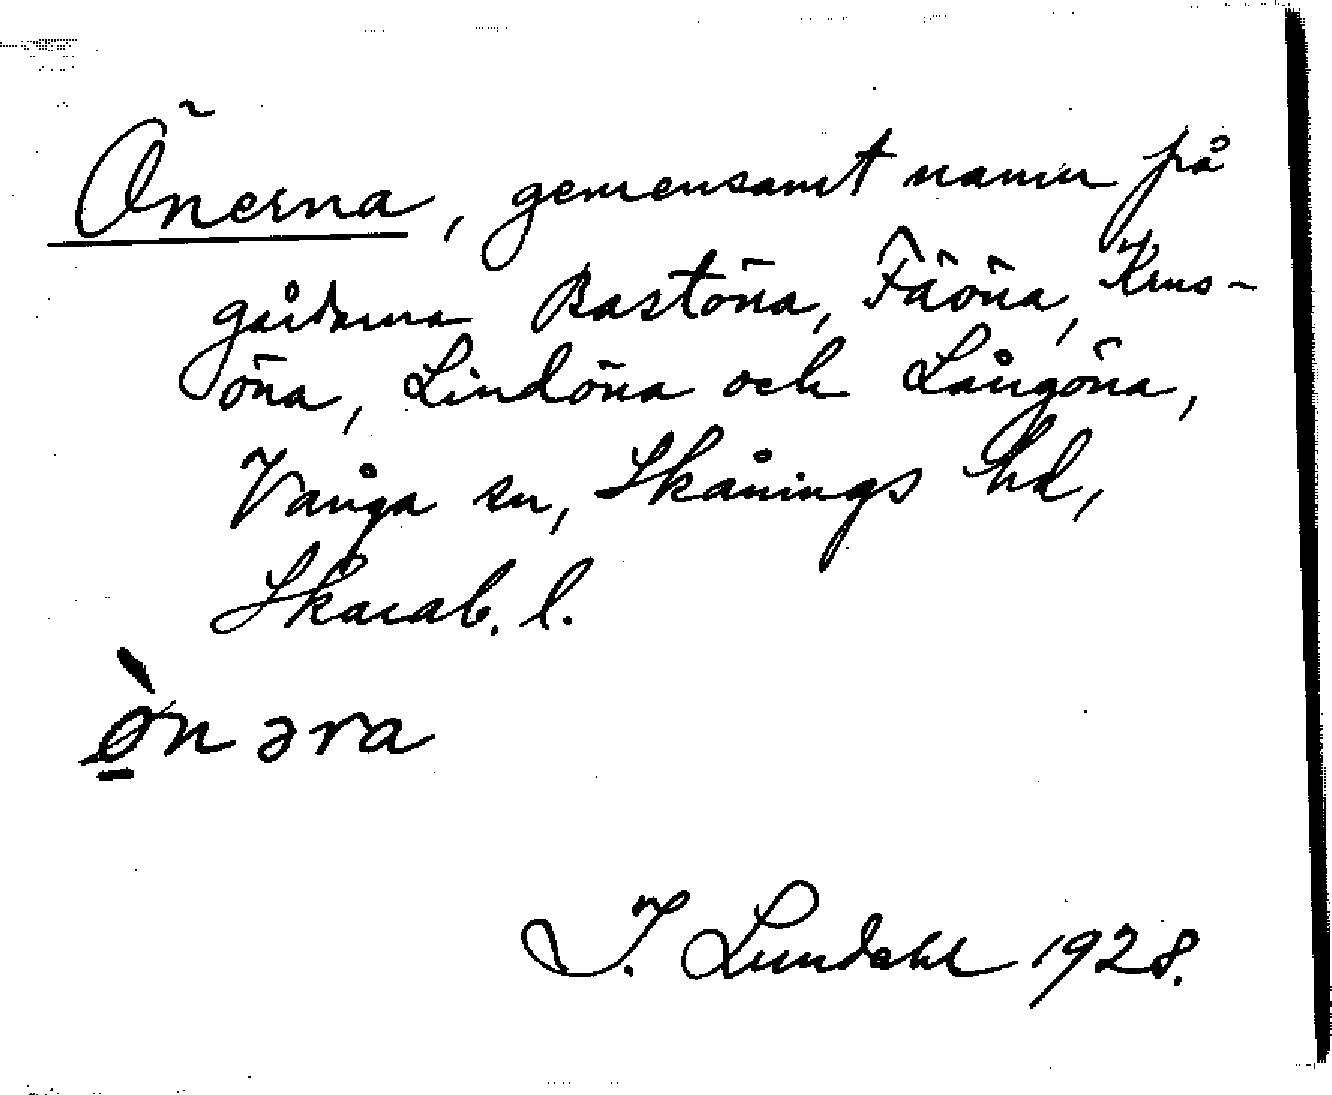 Önerna, gemensamt namn på
gårdarna Bastöna, Fäöna, Krus-
öna, Lindöna och Långöna,
Vånga sn, Skånings hd,
Skarab. l.
ø̀nəra
I. Lundahl 1928.